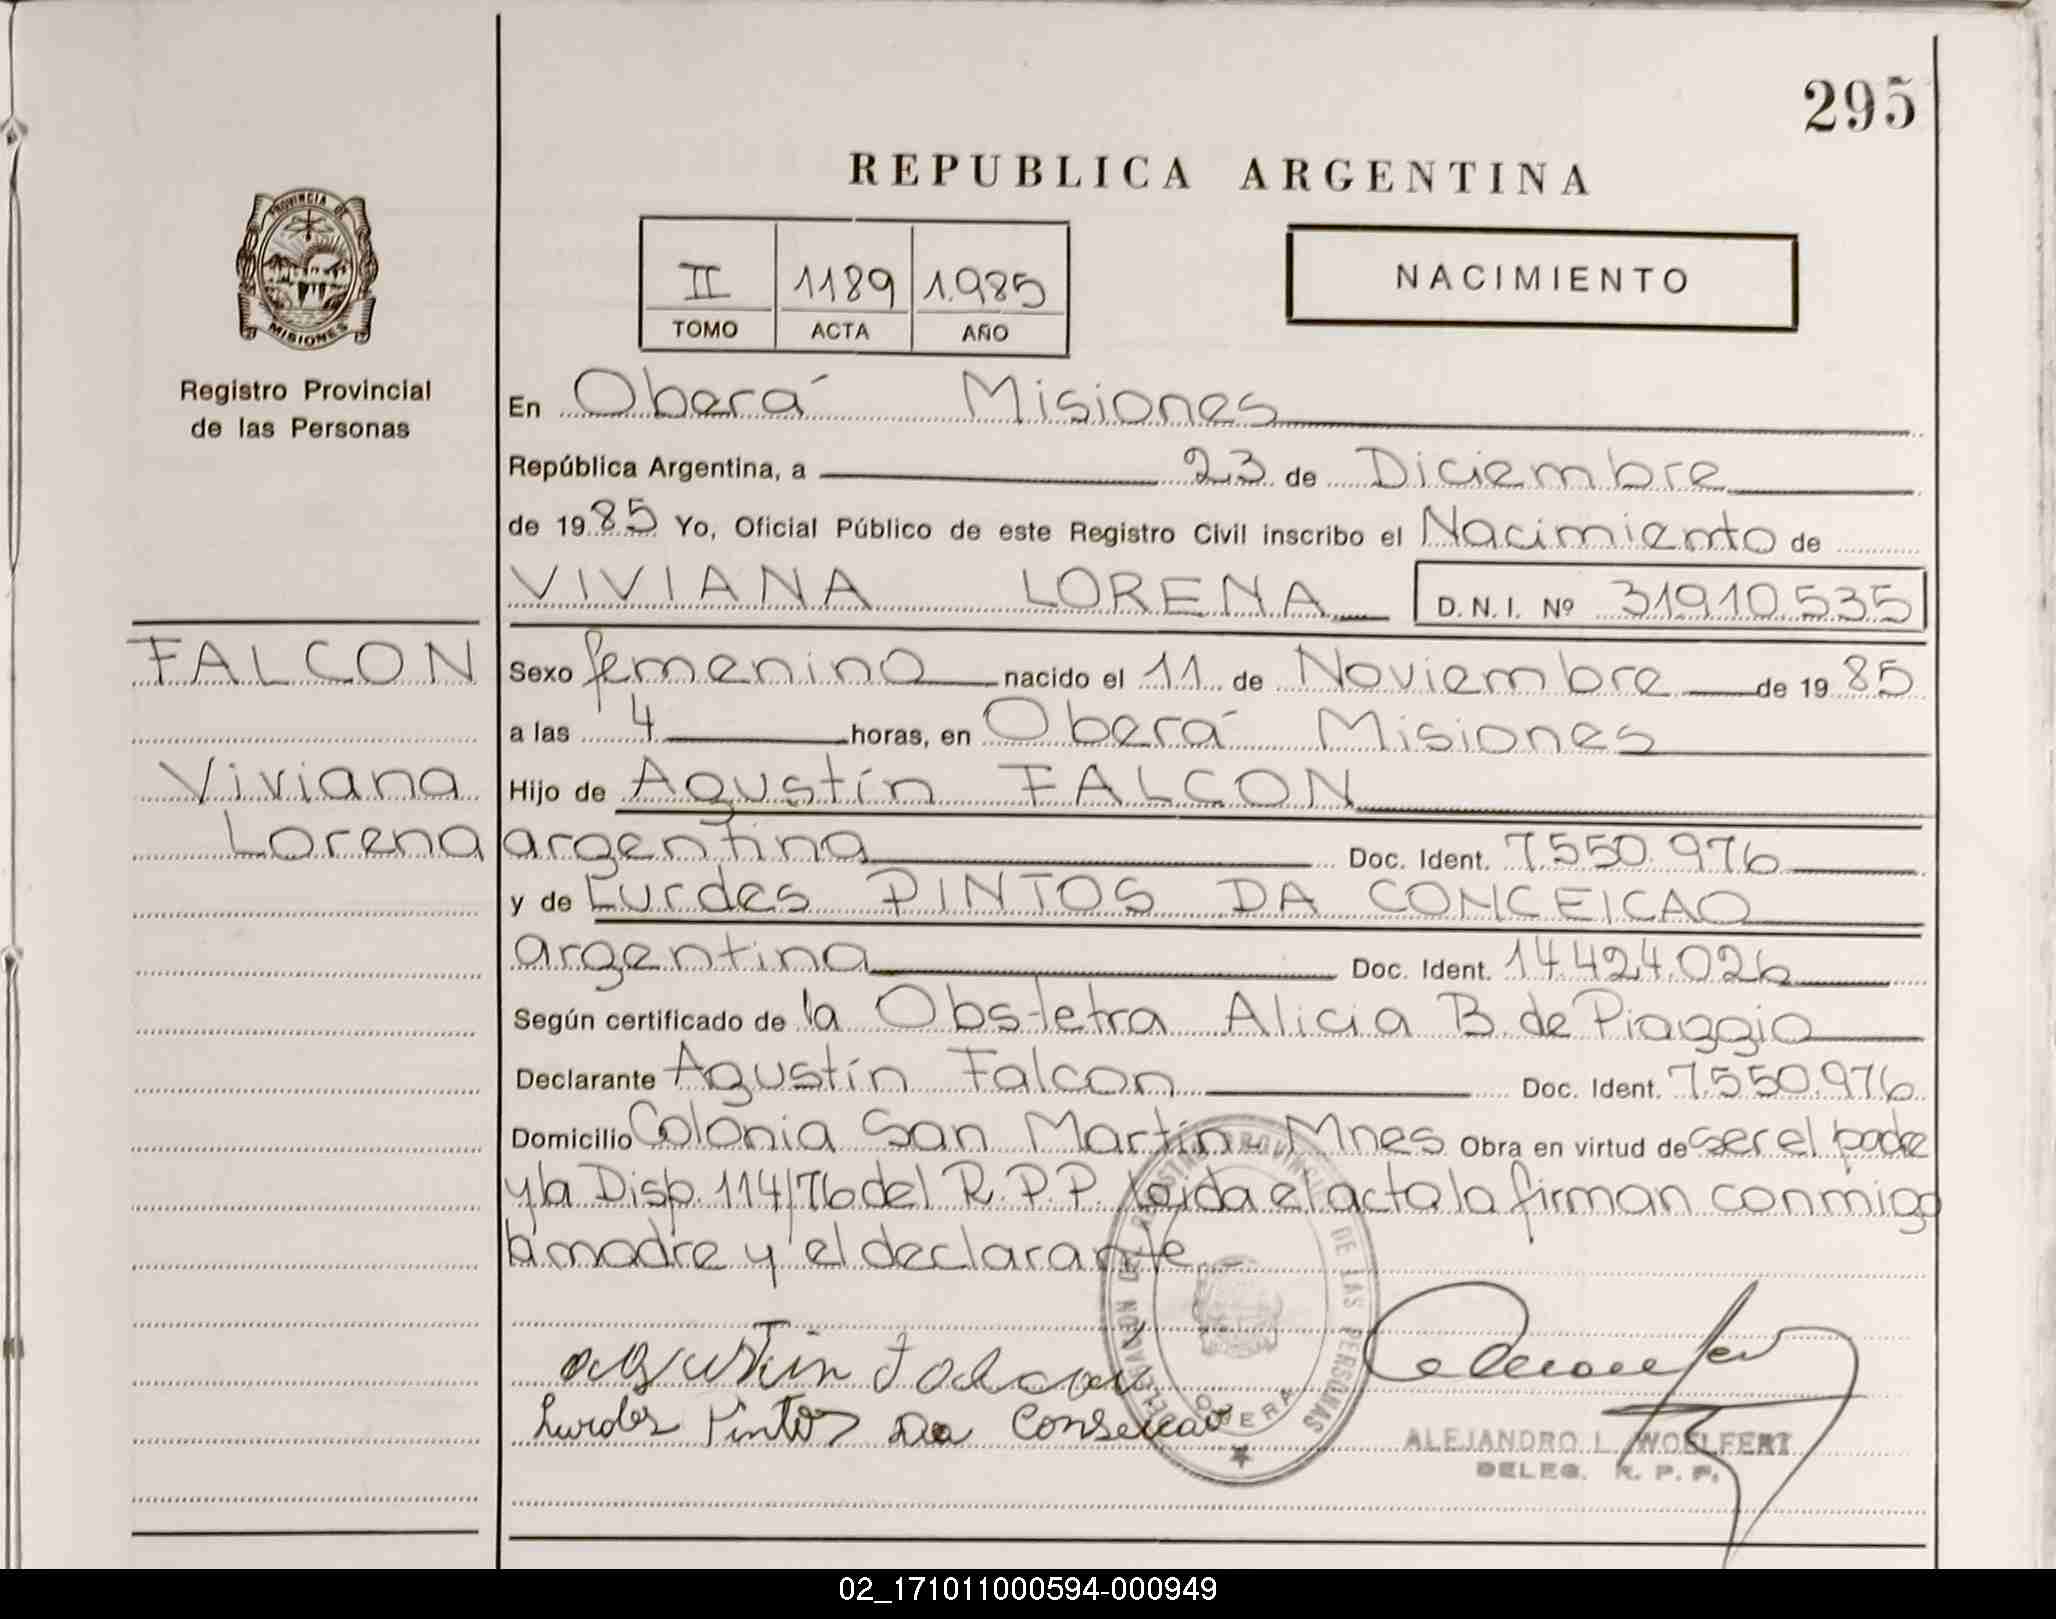 295
REPUBLICA ARGENTINA
II 1189 1.985
TOMO ACTA AÑO
NACIMIENTO
PROVINCIA DE
MISIONES
Registro Provincial
de las Personas
FALCON
Viviana
Lorena
En Oberá Misiones
República Argentina, a 23 de Diciembre
de 1985 Yo, Oficial Público de este Registro Civil inscribo el Nacimiento de
VIVIANA LORENA D.N.I. Nº 31.910.535
Sexo femenino nacido el 11 de Noviembre de 1985
a las 4 horas, en Oberá Misiones
Hijo de Agustín FALCON
argentina Doc. Ident. 7.550.976
y de Lurdes PINTOS DA CONCEICAO
argentina Doc. Ident. 14.424.026
Según certificado de la Obstetra Alicia B. de Piaggio
Declarante Agustín Falcon Doc. Ident. 7.550.976
Domicilio Colonia San Martín - Mnes Obra en virtud de ser el padre
y la Disp. 114/76 del R.P.P. Leida el acta la firman conmigo
la madre y el declarante.-
agustin Falcon
Lurdes Pintos Da Conseicao
DELEGACION DEL REGISTRO PROVINCIAL DE LAS PERSONAS
OBERA
ALEJANDRO L. WOELFERT
DELEG. R. P. P.
02_171011000594-000949